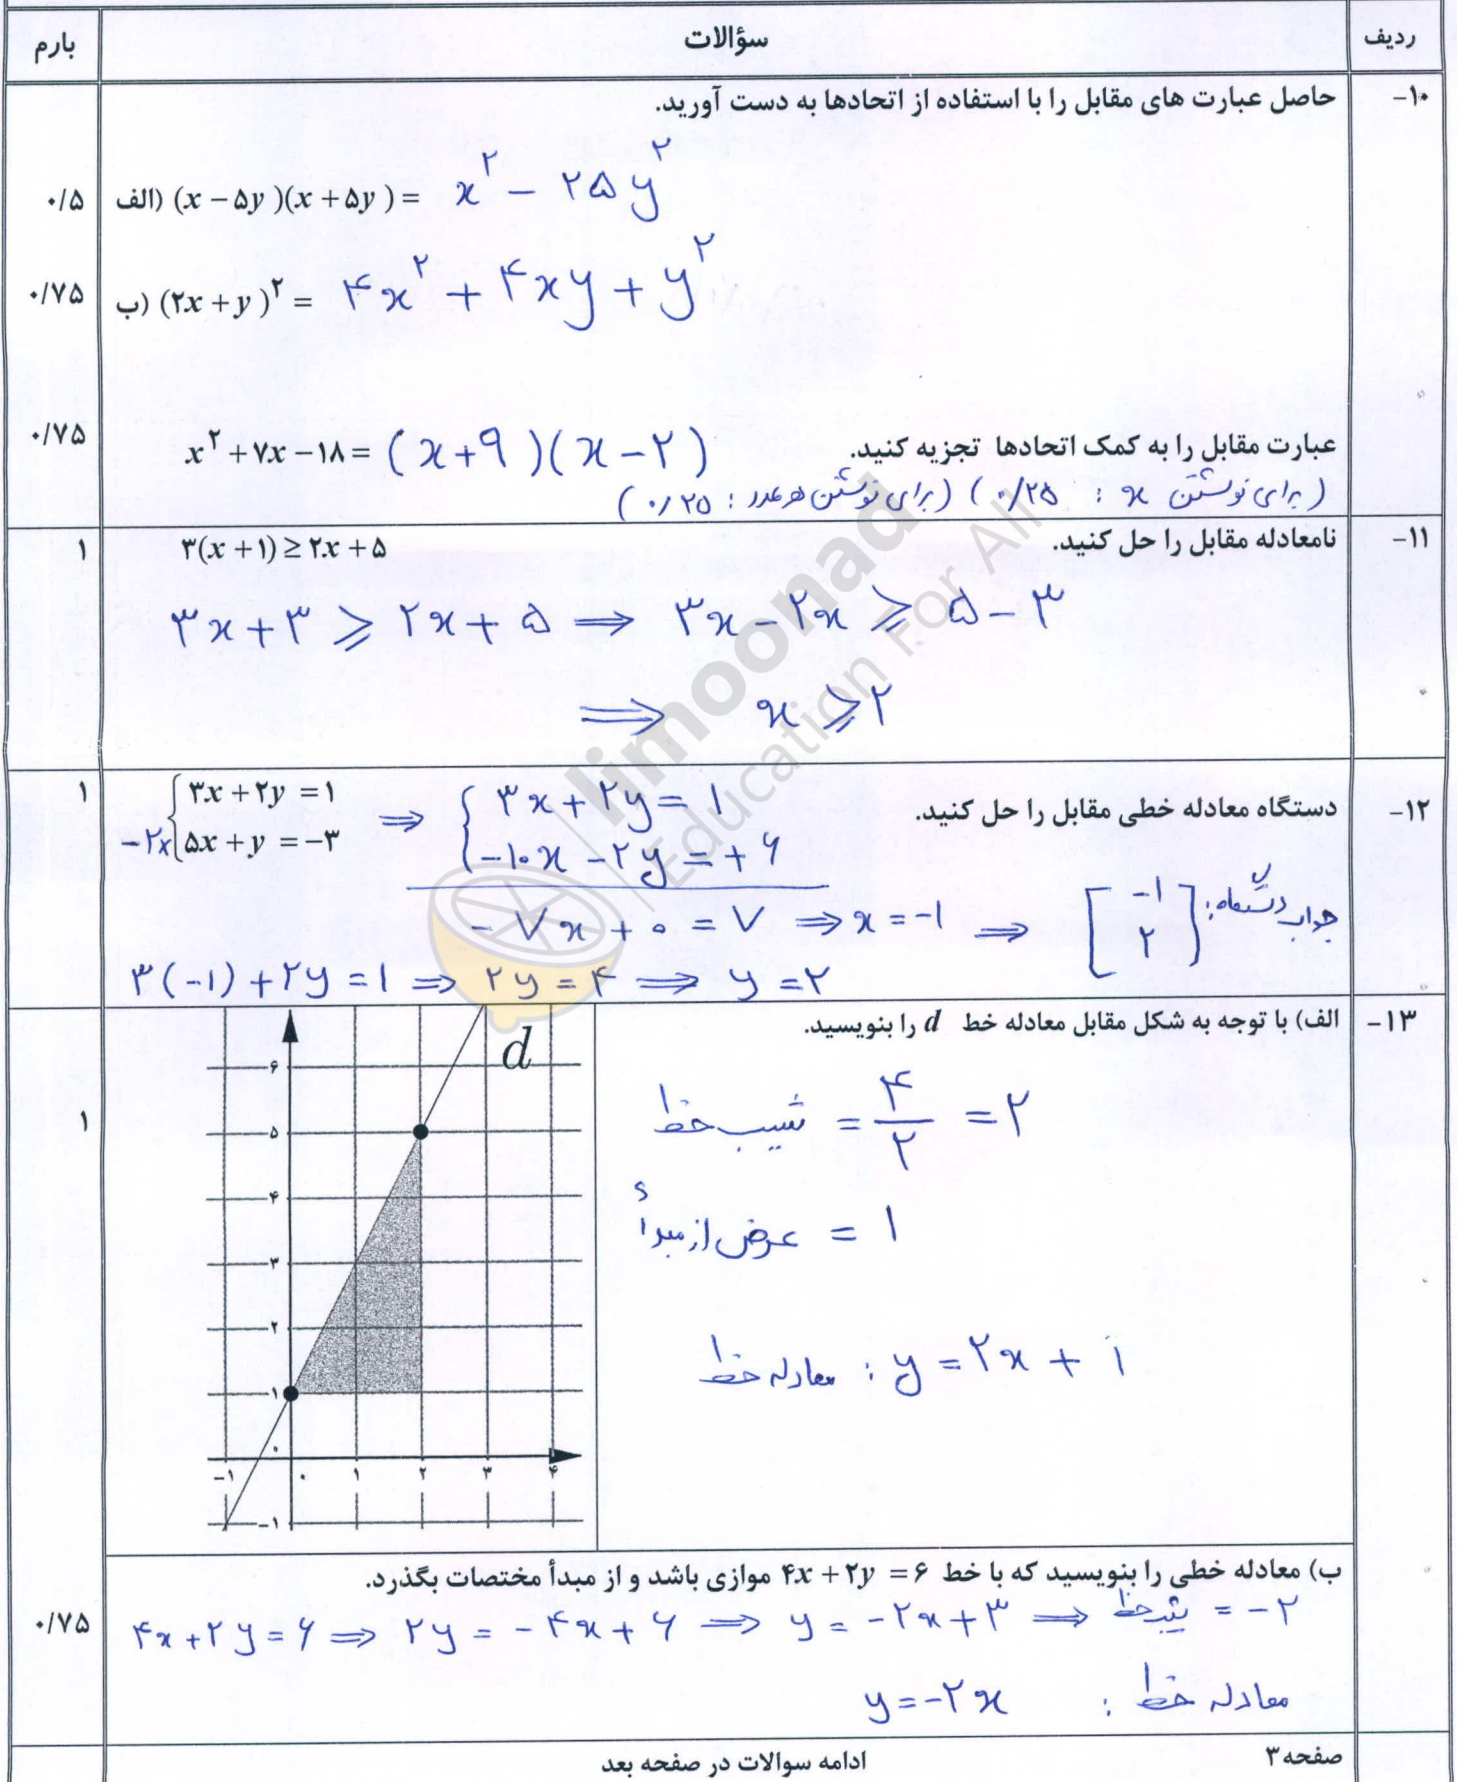 ردیف سؤالات بارم
۱۰- حاصل عبارت های مقابل را با استفاده از اتحادها به دست آورید.
الف) (x − ۵y)(x + ۵y) = x^۲ − ۲۵y^۲ ۰/۵
ب) (۲x + y)^۲ = ۴x^۲ + ۴xy + y^۲ ۰/۷۵
عبارت مقابل را به کمک اتحادها تجزیه کنید. x^۲ + ۷x − ۱۸ = (x+۹)(x−۲) ۰/۷۵
(برای نوشتن x : ۰/۲۵) (برای نوشتن هر عدد : ۰/۲۵)
۱۱- نامعادله مقابل را حل کنید. ۳(x + ۱) ≥ ۲x + ۵ ۱
۳x + ۳ ≥ ۲x + ۵ ⇒ ۳x − ۲x ≥ ۵ − ۳
⇒ x ≥ ۲
۱۲- دستگاه معادله خطی مقابل را حل کنید. ۱
۳x + ۲y = ۱ ⇒ ۳x + ۲y = ۱
−۲× ۵x + y = −۳ −۱۰x − ۲y = +۶
−۷x + ۰ = ۷ ⇒ x = −۱ ⇒ [−۱ ۲] : جواب دستگاه
۳(−۱) + ۲y = ۱ ⇒ ۲y = ۴ ⇒ y = ۲
۱۳- الف) با توجه به شکل مقابل معادله خط d را بنویسید. ۱
d
۶
۵
۴
۳
۲
۱
۰
−۱ ۰ ۱ ۲ ۳ ۴
−۱
شیب خط = ۴/۲ = ۲
عرض از مبدأ = ۱
معادله خط : y = ۲x + ۱
ب) معادله خطی را بنویسید که با خط ۴x + ۲y = ۶ موازی باشد و از مبدأ مختصات بگذرد. ۰/۷۵
۴x + ۲y = ۶ ⇒ ۲y = −۴x + ۶ ⇒ y = −۲x + ۳ ⇒ شیب خط = −۲
معادله خط : y = −۲x
صفحه ۳ ادامه سوالات در صفحه بعد
limoonad
Education For All